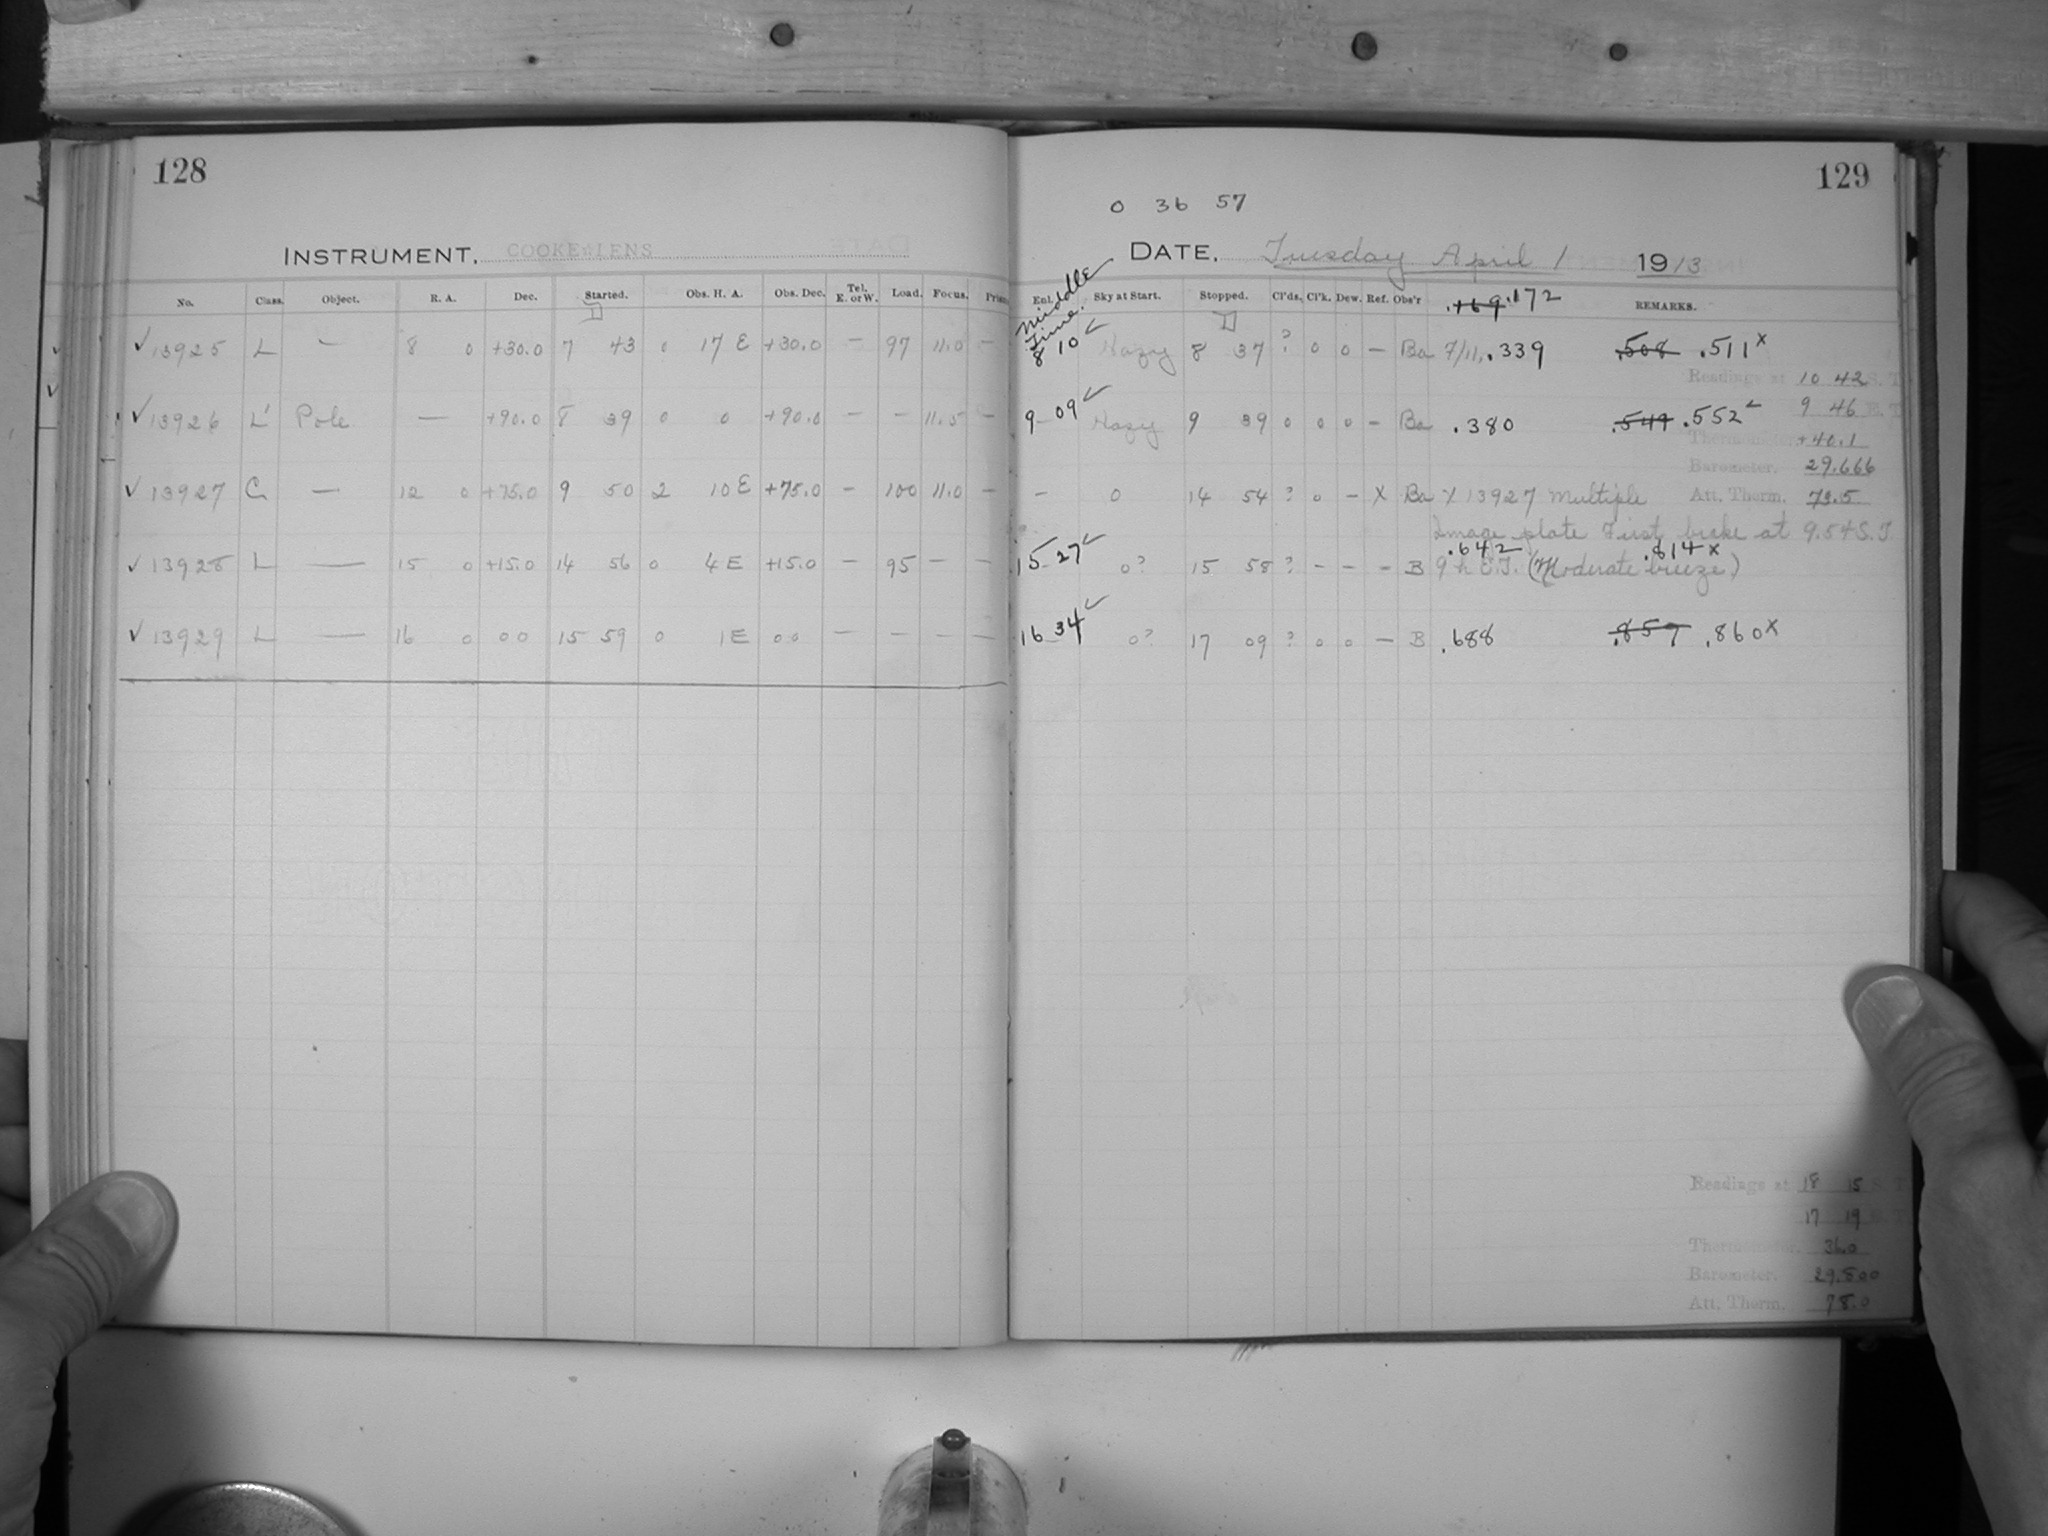 128
INSTRUMENT. COOKE LENS
No. Class. Object. R. A. Dec. Started. Obs. H. A. Obs. Dec. Tel. E. or W. Load. Focus.
✓ 13925 L — 8 0 +30.0 7 43 0 17 E +30.0 — 97 11.0 —
✓ 13926 L' Pole — +90.0 8 39 0 0 +90.0 — — 11.5 —
✓ 13927 C — 12 0 +75.0 9 50 2 10 E +75.0 — 100 11.0 —
✓ 13928 L — 15 0 +15.0 14 56 0 4 E +15.0 — 95 — —
✓ 13929 L — 16 0 00 15 59 0 1 E 00 — — — —
129
0 36 57
DATE. Tuesday April 1 1913
Middle Time.
Enl. Sky at Start. Stopped. Cl'ds. Cl'k. Dew. Ref. Obs'r .169 .172 REMARKS.
8 10 ✓ Hazy 8 37 ? 0 0 — Ba 7/11, .339 .508 .511 x
Readings at 10 42 S. T.
9 46 E. T.
9 09 ✓ Hazy 9 39 0 0 0 — Ba .380 .549 .552 ✓
Thermometer +40.1
Barometer. 29.666
— 0 14 54 ? 0 — X Ba X 13927 Multiple
Att. Therm. 73.5
Image plate First brake at 9.54 S.T.
.642 .814 x
15 27 ✓ 0? 15 58 ? — — — B 9 h E.T. (Moderate breeze)
16 34 ✓ 0? 17 09 ? 0 0 — B .688 .857 .860 x
Readings at 18 15 S. T.
17 19
Thermometer. 36.0
Barometer. 29.800
Att. Therm. 78.0